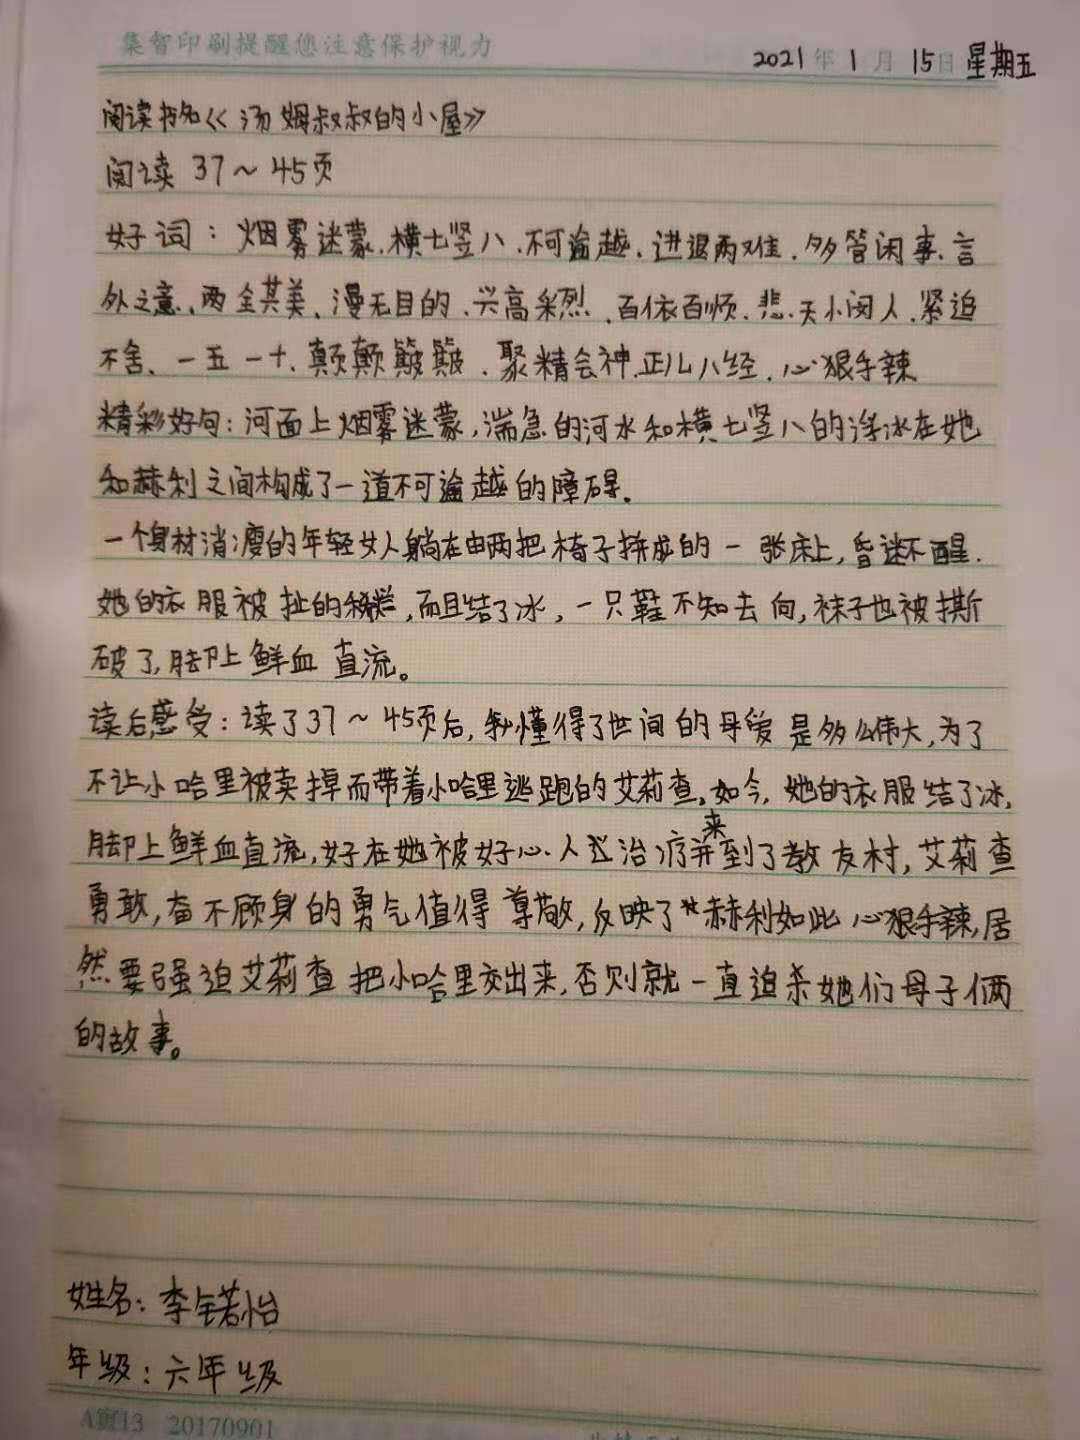 集智印刷提醒您注意保护视力
2021年1月15日 星期五
阅读书名《汤姆叔叔的小屋》
阅读 37～45页
好词：烟雾迷蒙、横七竖八、不可逾越、进退两难、多管闲事、言
外之意、两全其美、漫无目的、兴高采烈、百依百顺、悲天小闵人、紧迫
不舍、一五一十、颠颠簸簸、聚精会神、正儿八经、心狠手辣
精彩好句：河面上烟雾迷蒙，湍急的河水和横七竖八的浮冰在她
和赫利之间构成了一道不可逾越的障碍。
一个身材消瘦的年轻女人躺在由两把椅子拼成的一张床上，昏迷不醒．
她的衣服被扯的稀烂，而且结了冰，一只鞋不知去向，袜子也被撕
破了，脚上鲜血直流。
读后感受：读了37～45页后，我懂得了世间的母爱是多么伟大，为了
不让小哈里被卖掉而带着小哈里逃跑的艾莉查。如今，她的衣服结了冰，
脚上鲜血直流，好在她被好心人治疗并来到了教友村，艾莉查
勇敢，奋不顾身的勇气值得尊敬，反映了赫利如此心狠手辣，居
然要强迫艾莉查把小哈里交出来，否则就一直追杀她们母子俩
的故事。
姓名：李若怡
年级：六年级
A 13 20170901